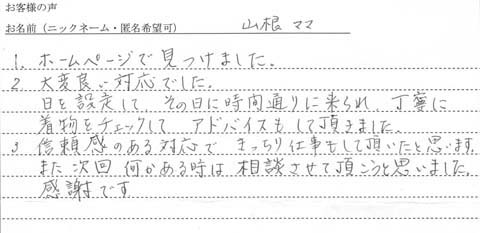 お客様の声
お名前(ニックネーム・匿名希望可) 山根ママ
1. ホームページで見つけました。
2. 大変良い対応でした。
日を設定して、その日に時間通りに来られ、丁寧に
着物をチェックして アドバイスもして頂きました。
3 信頼感のある対応で きっちり仕事もして頂いたと思います。
また次回 何かある時は 相談させて頂こうと思いました。
感謝です